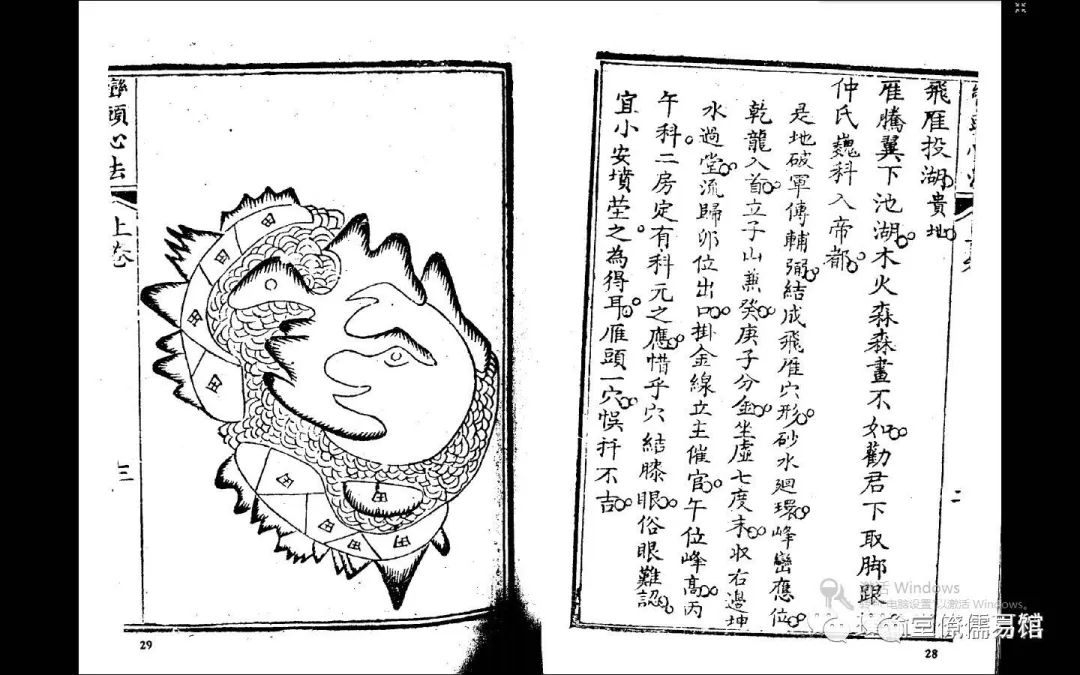 飛雁投湖貴地
雁騰翼下池湖木火森森畫不如勸君下取脚跟
仲氏巍科入帝都
是地破軍傳輔弼結成飛雁穴形砂水廻環峰巒應位
乾龍入首立子山兼癸庚子分金坐虛七度末收右邊坤
水過堂流歸卯位出口掛金線立主催官午位峰高丙
午科二房定有科元之應惜乎穴結膝眼俗眼難認
宜小安墳塋之為得耳雁頭一穴悞扦不吉
二
28
巒頭心法
上卷
三
田
田
田
田
田
田
田
田
29
激活 Windows
電腦設置以激活 Windows。
儒易馆